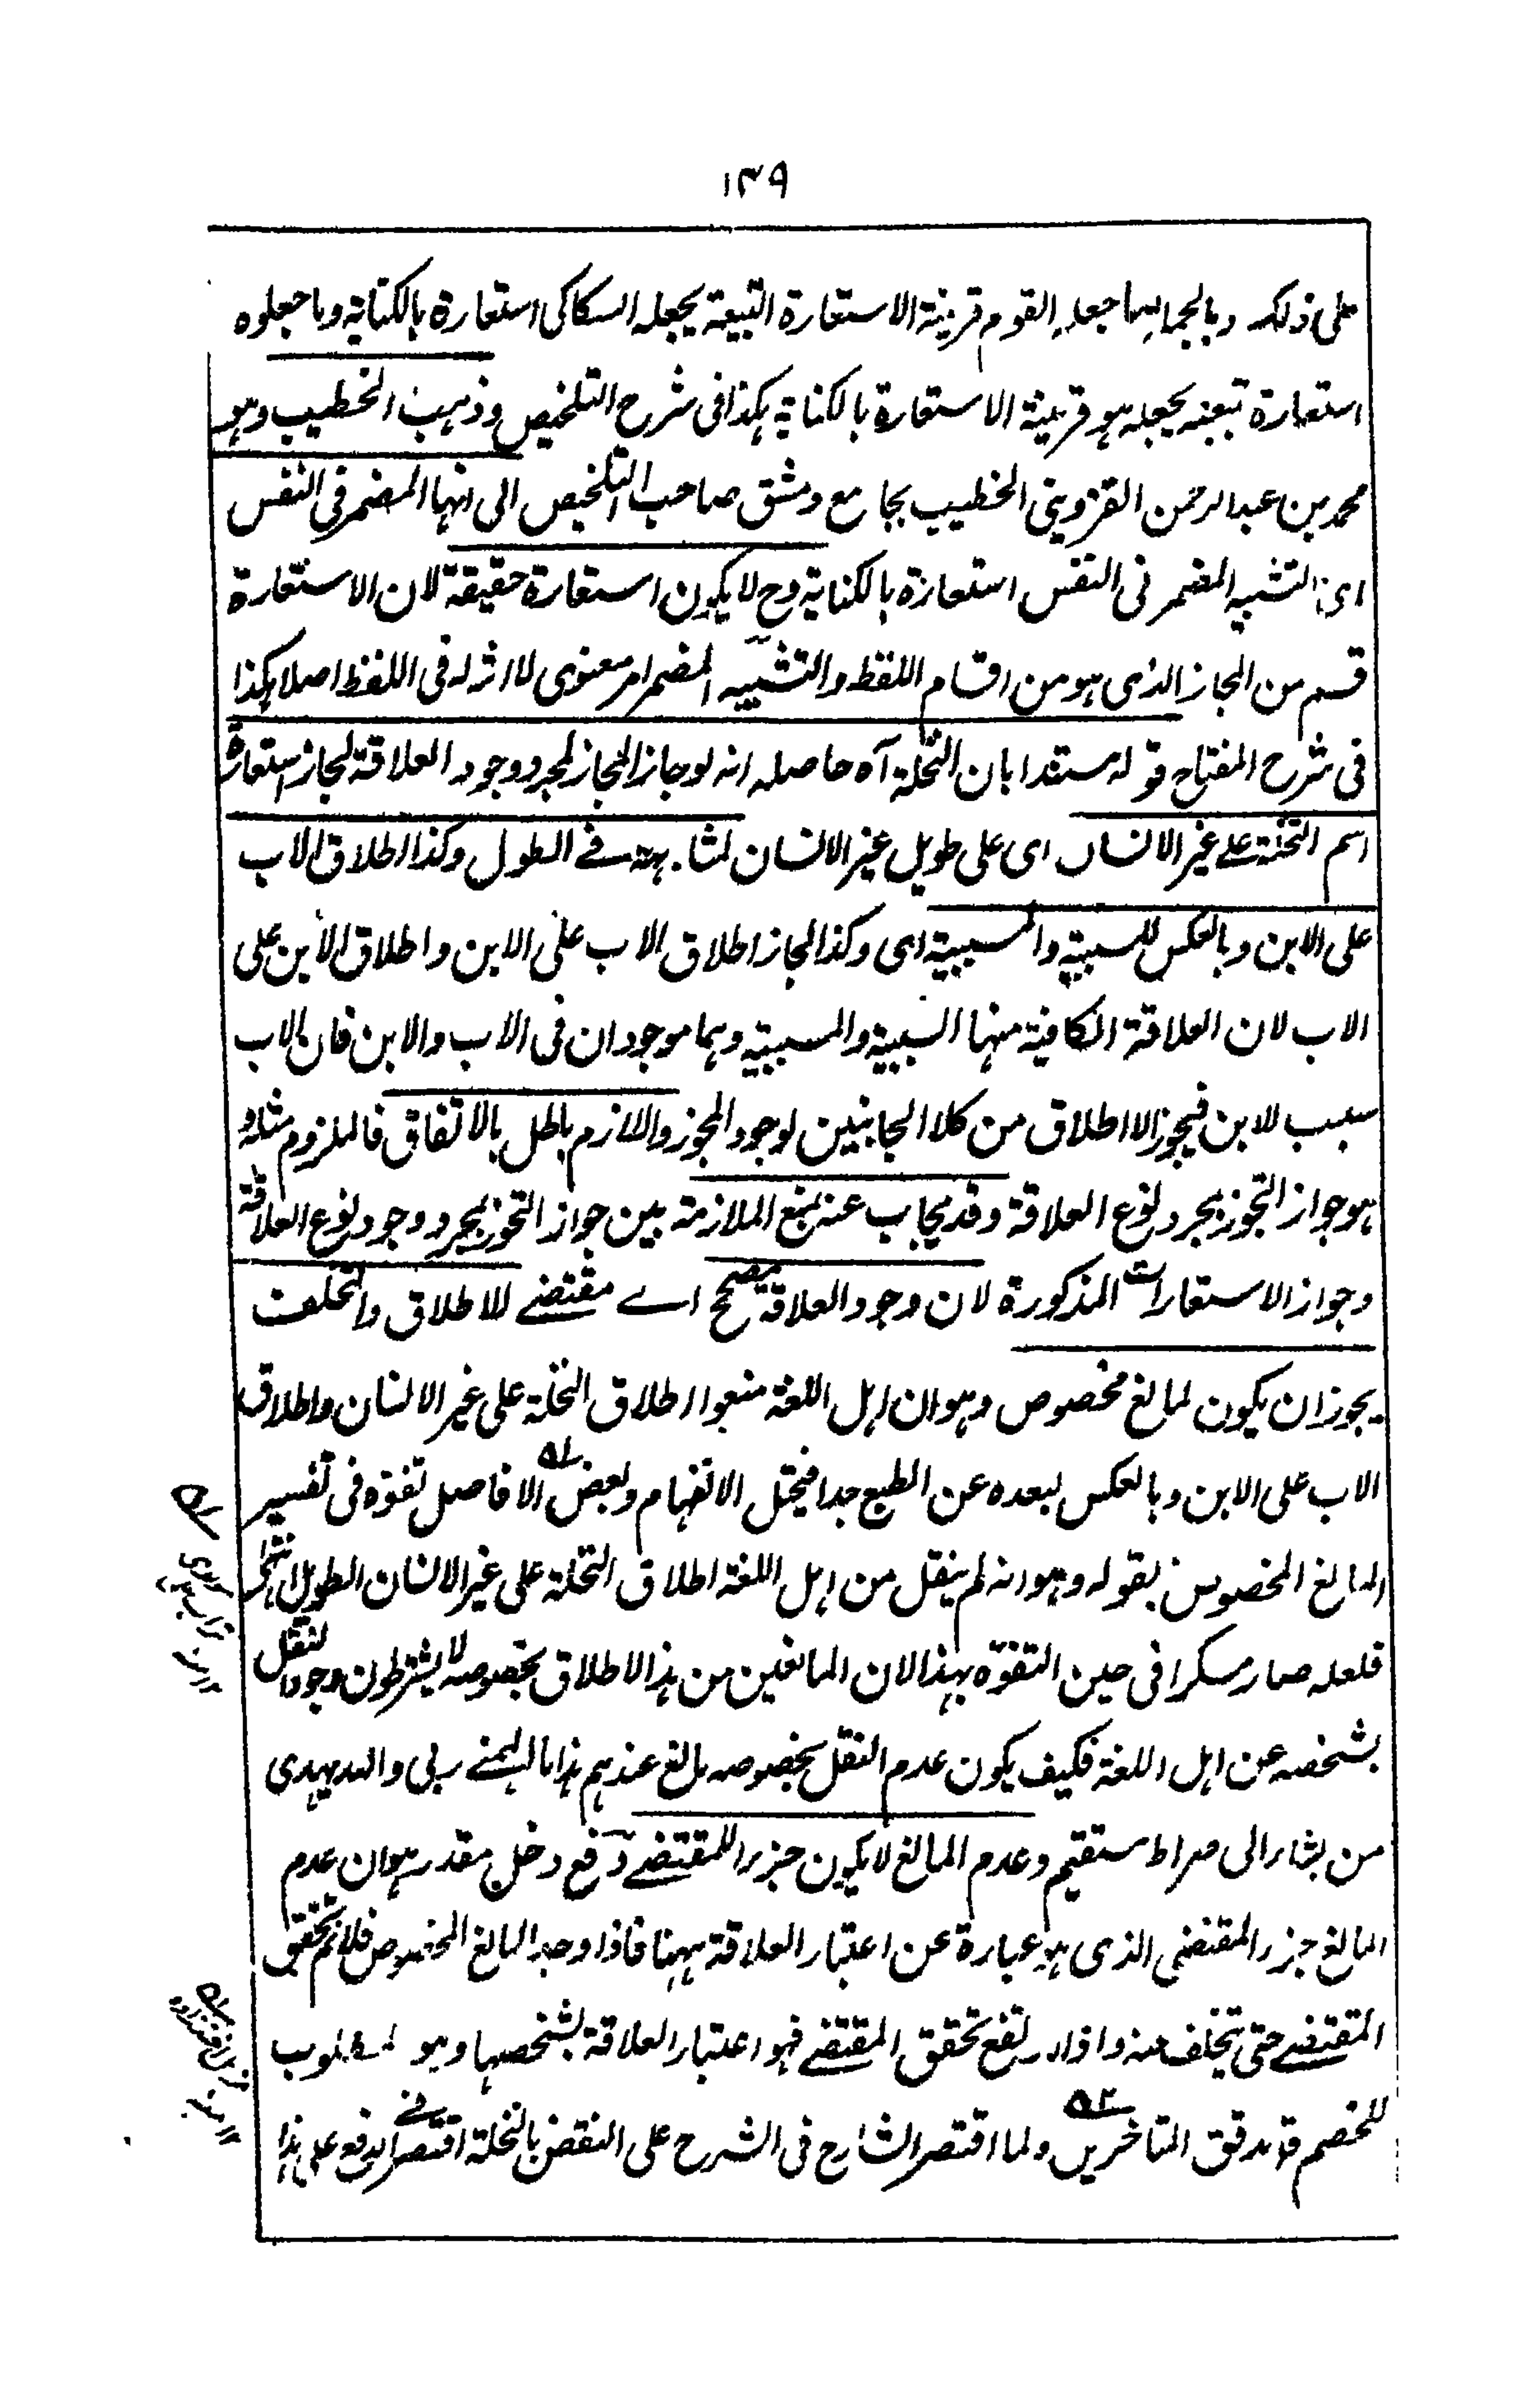 ١٣٩
على ذلك وبالجملة ما جعله القوم قرينة الاستعارة التبعية يجعله السكاكي استعارة بالكناية وما جعلوه
استعارة تبعية يجعله هو قرينة الاستعارة بالكناية هكذا فى شرح التلخيص وذهب الخطيب وهو
محمد بن عبد الرحمن القزويني الخطيب بجامع دمشق صاحب التلخيص الى انها المضمر في النفس
اى التشبيه المضمر فى النفس استعارة بالكناية وح لا يكون استعارة حقيقة لان الاستعارة
قسم من المجاز الذى هو من اقسام اللفظ والتشبيه المضمر امر معنوى لا اثر له فى اللفظ اصلا هكذا
فى شرح المفتاح قوله مستندا بان النخلة آه حاصله انه لو جاز المجاز لمجرد وجود العلاقة لجاز استعارة
اسم النخلة على غير الانسان اى على طويل غير الانسان لمشابهته فى الطول وكذا اطلاق الاب
على الابن وبالعكس للسببية والمسببية اى وكذا لجاز اطلاق الاب على الابن واطلاق الابن على
الاب لان العلاقة الكافية منها السببية والمسببية وهما موجودان فى الاب والابن فان الاب
سبب للابن فيجوز الاطلاق من كلا الجانبين لوجود المجوز واللازم باطل بالاتفاق فالملزوم مثله و
هو جواز التجوز بمجرد نوع العلاقة وقد يجاب عنه بمنع الملازمة بين جواز التجوز بمجرد وجود نوع العلاقة
وجواز الاستعارات المذكورة لان وجود العلاقة مصحح اى مقتضى للاطلاق والتخلف
يجوز ان يكون لمانع مخصوص وهو ان اهل اللغة منعوا اطلاق النخلة على غير الانسان واطلاق
الاب على الابن وبالعكس لبعده عن الطبع جدا فيختل الانفهام وبعض الافاضل تفوّه فى تفسير
المانع المخصوص بقوله وهو انه لم ينقل من اهل اللغة اطلاق النخلة على غير الانسان الطويل انتهى
فلعله صار مسكرا فى حين التفوّه بهذا لان المانعين من هذا الاطلاق بخصوصه لا يشترطون وجود النقل
بشخصه عن اهل اللغة فكيف يكون عدم النقل بخصوصه مانع عندهم هذا ما الهمنى ربى والله يهدى
من يشاء الى صراط مستقيم وعدم المانع لا يكون جزء للمقتضى دفع دخل مقدر هو ان عدم
المانع جزء المقتضى الذى هو عبارة عن اعتبار العلاقة ههنا فاذا وجد المانع المخصوص فلا تم تحقق
المقتضى حتى يتخلف عنه واذا ارتفع تحقق المقتضى فهو اعتبار العلاقة بشخصها وهو المطلوب
للخصم قا مدقق المتاخرين ولما اقتصر الشارح فى الشرح على النقض بالنخلة اقتصر فى الدفع على هذا